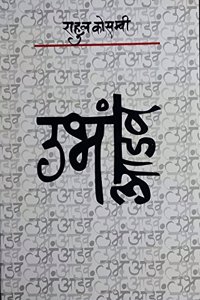 राहुल कोसम्बी
उभं
आडवं